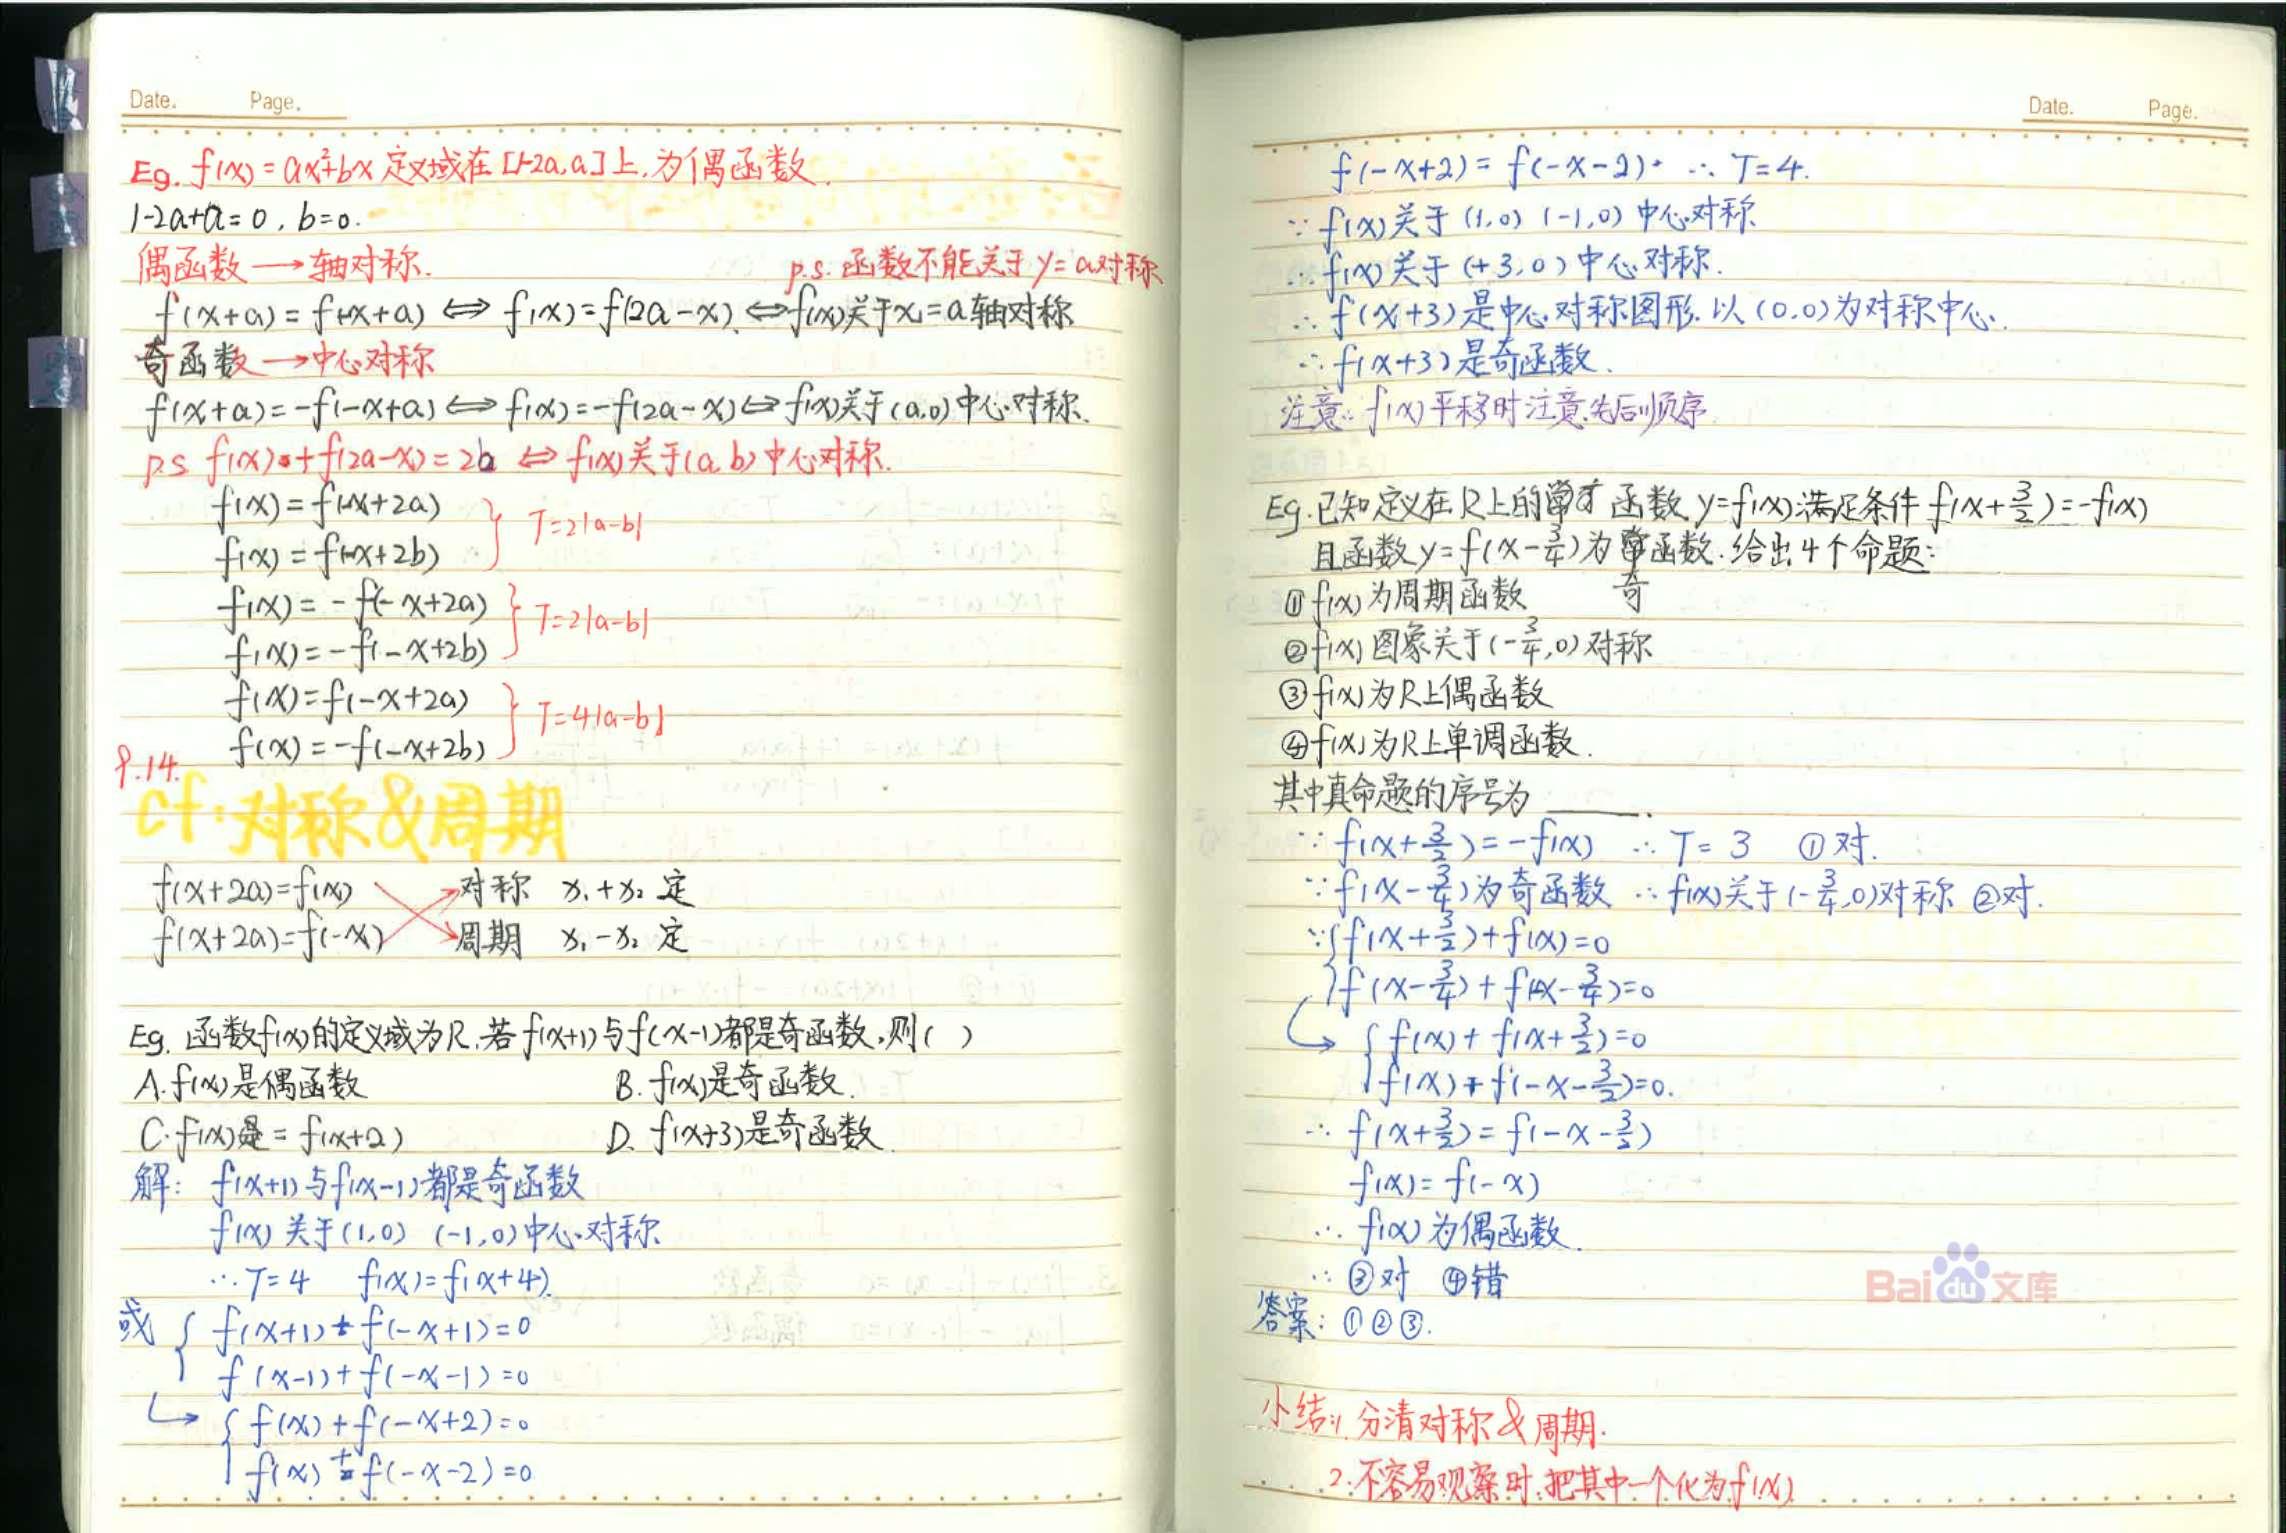 Date. Page.
Eg. f(x)=ax²+bx 定义域在[1-2a,a]上,为偶函数.
1-2a+a=0, b=0.
偶函数→轴对称. p.s. 函数不能关于y=a对称
f(x+a)=f(-x+a)⇔f(x)=f(2a-x)⇔f(x)关于x=a轴对称
奇函数→中心对称
f(x+a)=-f(-x+a)⇔f(x)=-f(2a-x)⇔f(x)关于(a,0)中心对称.
p.s f(x)+f(2a-x)=2b⇔f(x)关于(a,b)中心对称.
f(x)=f(-x+2a)
f(x)=f(-x+2b) } T=2|a-b|
f(x)=-f(-x+2a)
f(x)=-f(-x+2b) } T=2|a-b|
f(x)=f(-x+2a)
f(x)=-f(-x+2b) } T=4|a-b|
P.14.
cf.对称&周期
f(x+2a)=f(x) 对称 x₁+x₂定
f(x+2a)=f(-x) 周期 x₁-x₂定
Eg. 函数f(x)的定义域为R,若f(x+1)与f(x-1)都是奇函数,则( )
A.f(x)是偶函数 B. f(x)是奇函数.
C.f(x)=f(x+2) D. f(x+3)是奇函数.
解: f(x+1)与f(x-1)都是奇函数
f(x)关于(1,0) (-1,0)中心对称
∴T=4 f(x)=f(x+4).
或 { f(x+1)+f(-x+1)=0
f(x-1)+f(-x-1)=0
→ { f(x)+f(-x+2)=0
f(x)+f(-x-2)=0
Date. Page.
f(-x+2)=f(-x-2). ∴T=4.
∵f(x)关于(1,0) (-1,0)中心对称
∴f(x)关于(+3,0)中心对称.
∴f(x+3)是中心对称图形.以(0,0)为对称中心.
∴f(x+3)是奇函数.
注意:f(x)平移时注意先后顺序
Eg.已知定义在R上的 函数y=f(x)满足条件f(x+3/2)=-f(x)
且函数y=f(x-3/4)为奇函数.给出4个命题:
①f(x)为周期函数
②f(x)图象关于(-3/4,0)对称
③f(x)为R上偶函数
④f(x)为R上单调函数.
其中真命题的序号为______.
∵f(x+3/2)=-f(x) ∴T=3 ①对.
∵f(x-3/4)为奇函数 ∴f(x)关于(-3/4,0)对称 ②对.
∵{ f(x+3/2)+f(x)=0
f(x-3/4)+f(-x-3/4)=0
→ { f(x)+f(x+3/2)=0
f(x)+f(-x-3/2)=0.
∴f(x+3/2)=f(-x-3/2)
f(x)=f(-x)
∴f(x)为偶函数.
∴③对 ④错
答案:①②③.
Baidu文库
小结:1.分清对称&周期.
2.不容易观察时,把其中一个化为f(x)